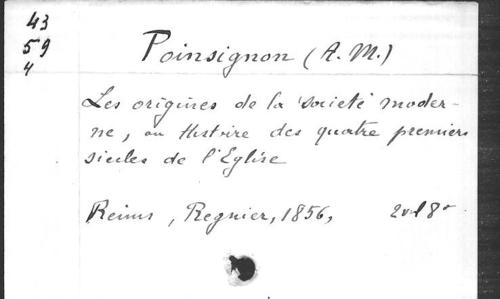 43
59
4
Poinsignon (A. M.)
Les origines de la société moder-
ne, ou Histoire des quatre premiers
siecles de l'Eglise
Reims, Regnier, 1856, 2 vol 8°